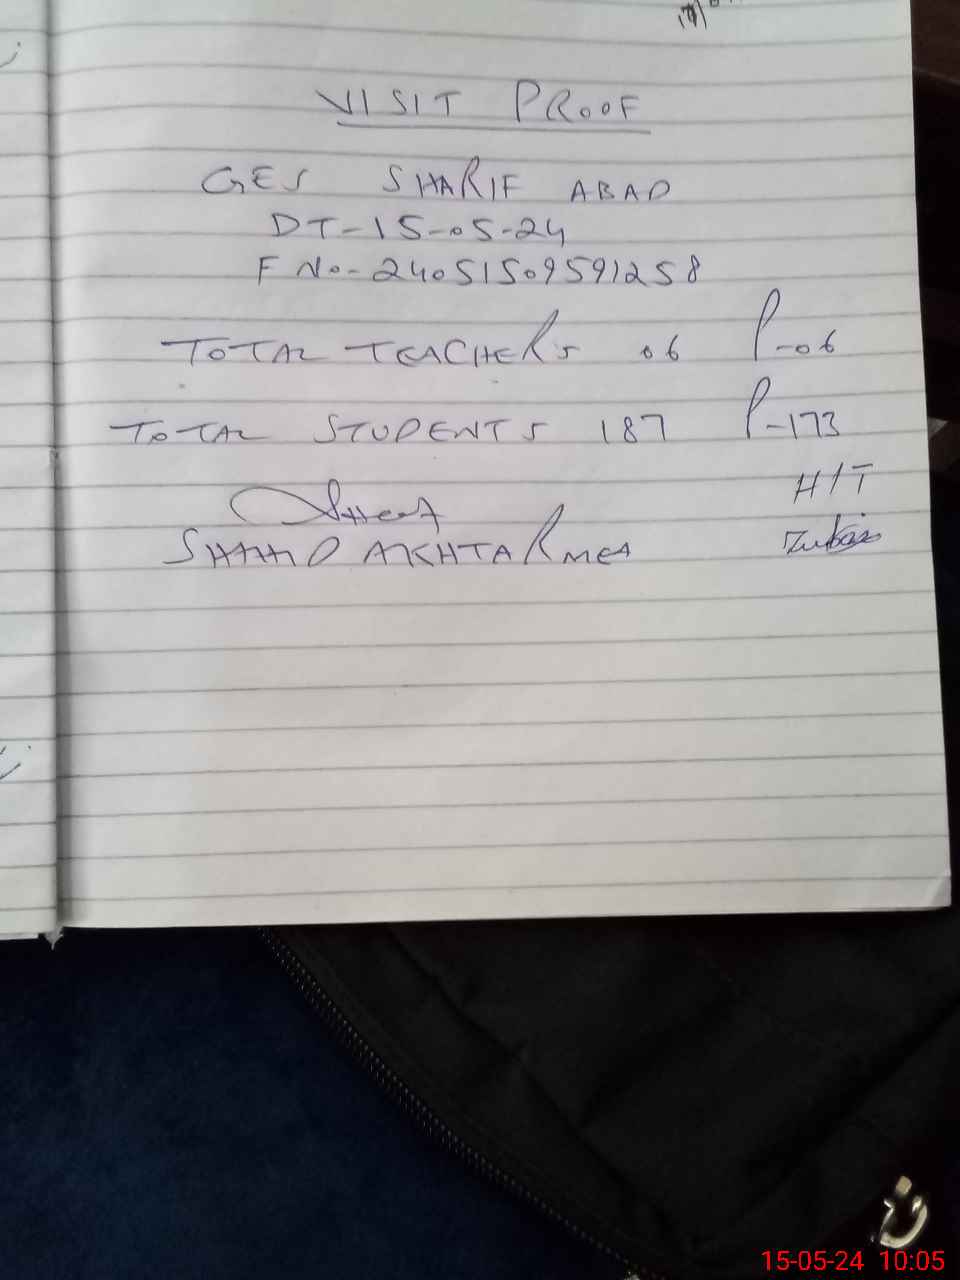 VISIT PROOF
GES SHARIF ABAD
DT-15-05-24
F No-24051509591258
TOTAL TEACHERS 06 P-06
TOTAL STUDENTS 187 P-173
H/T
AKHTAR MEA
15-05-24 10:05